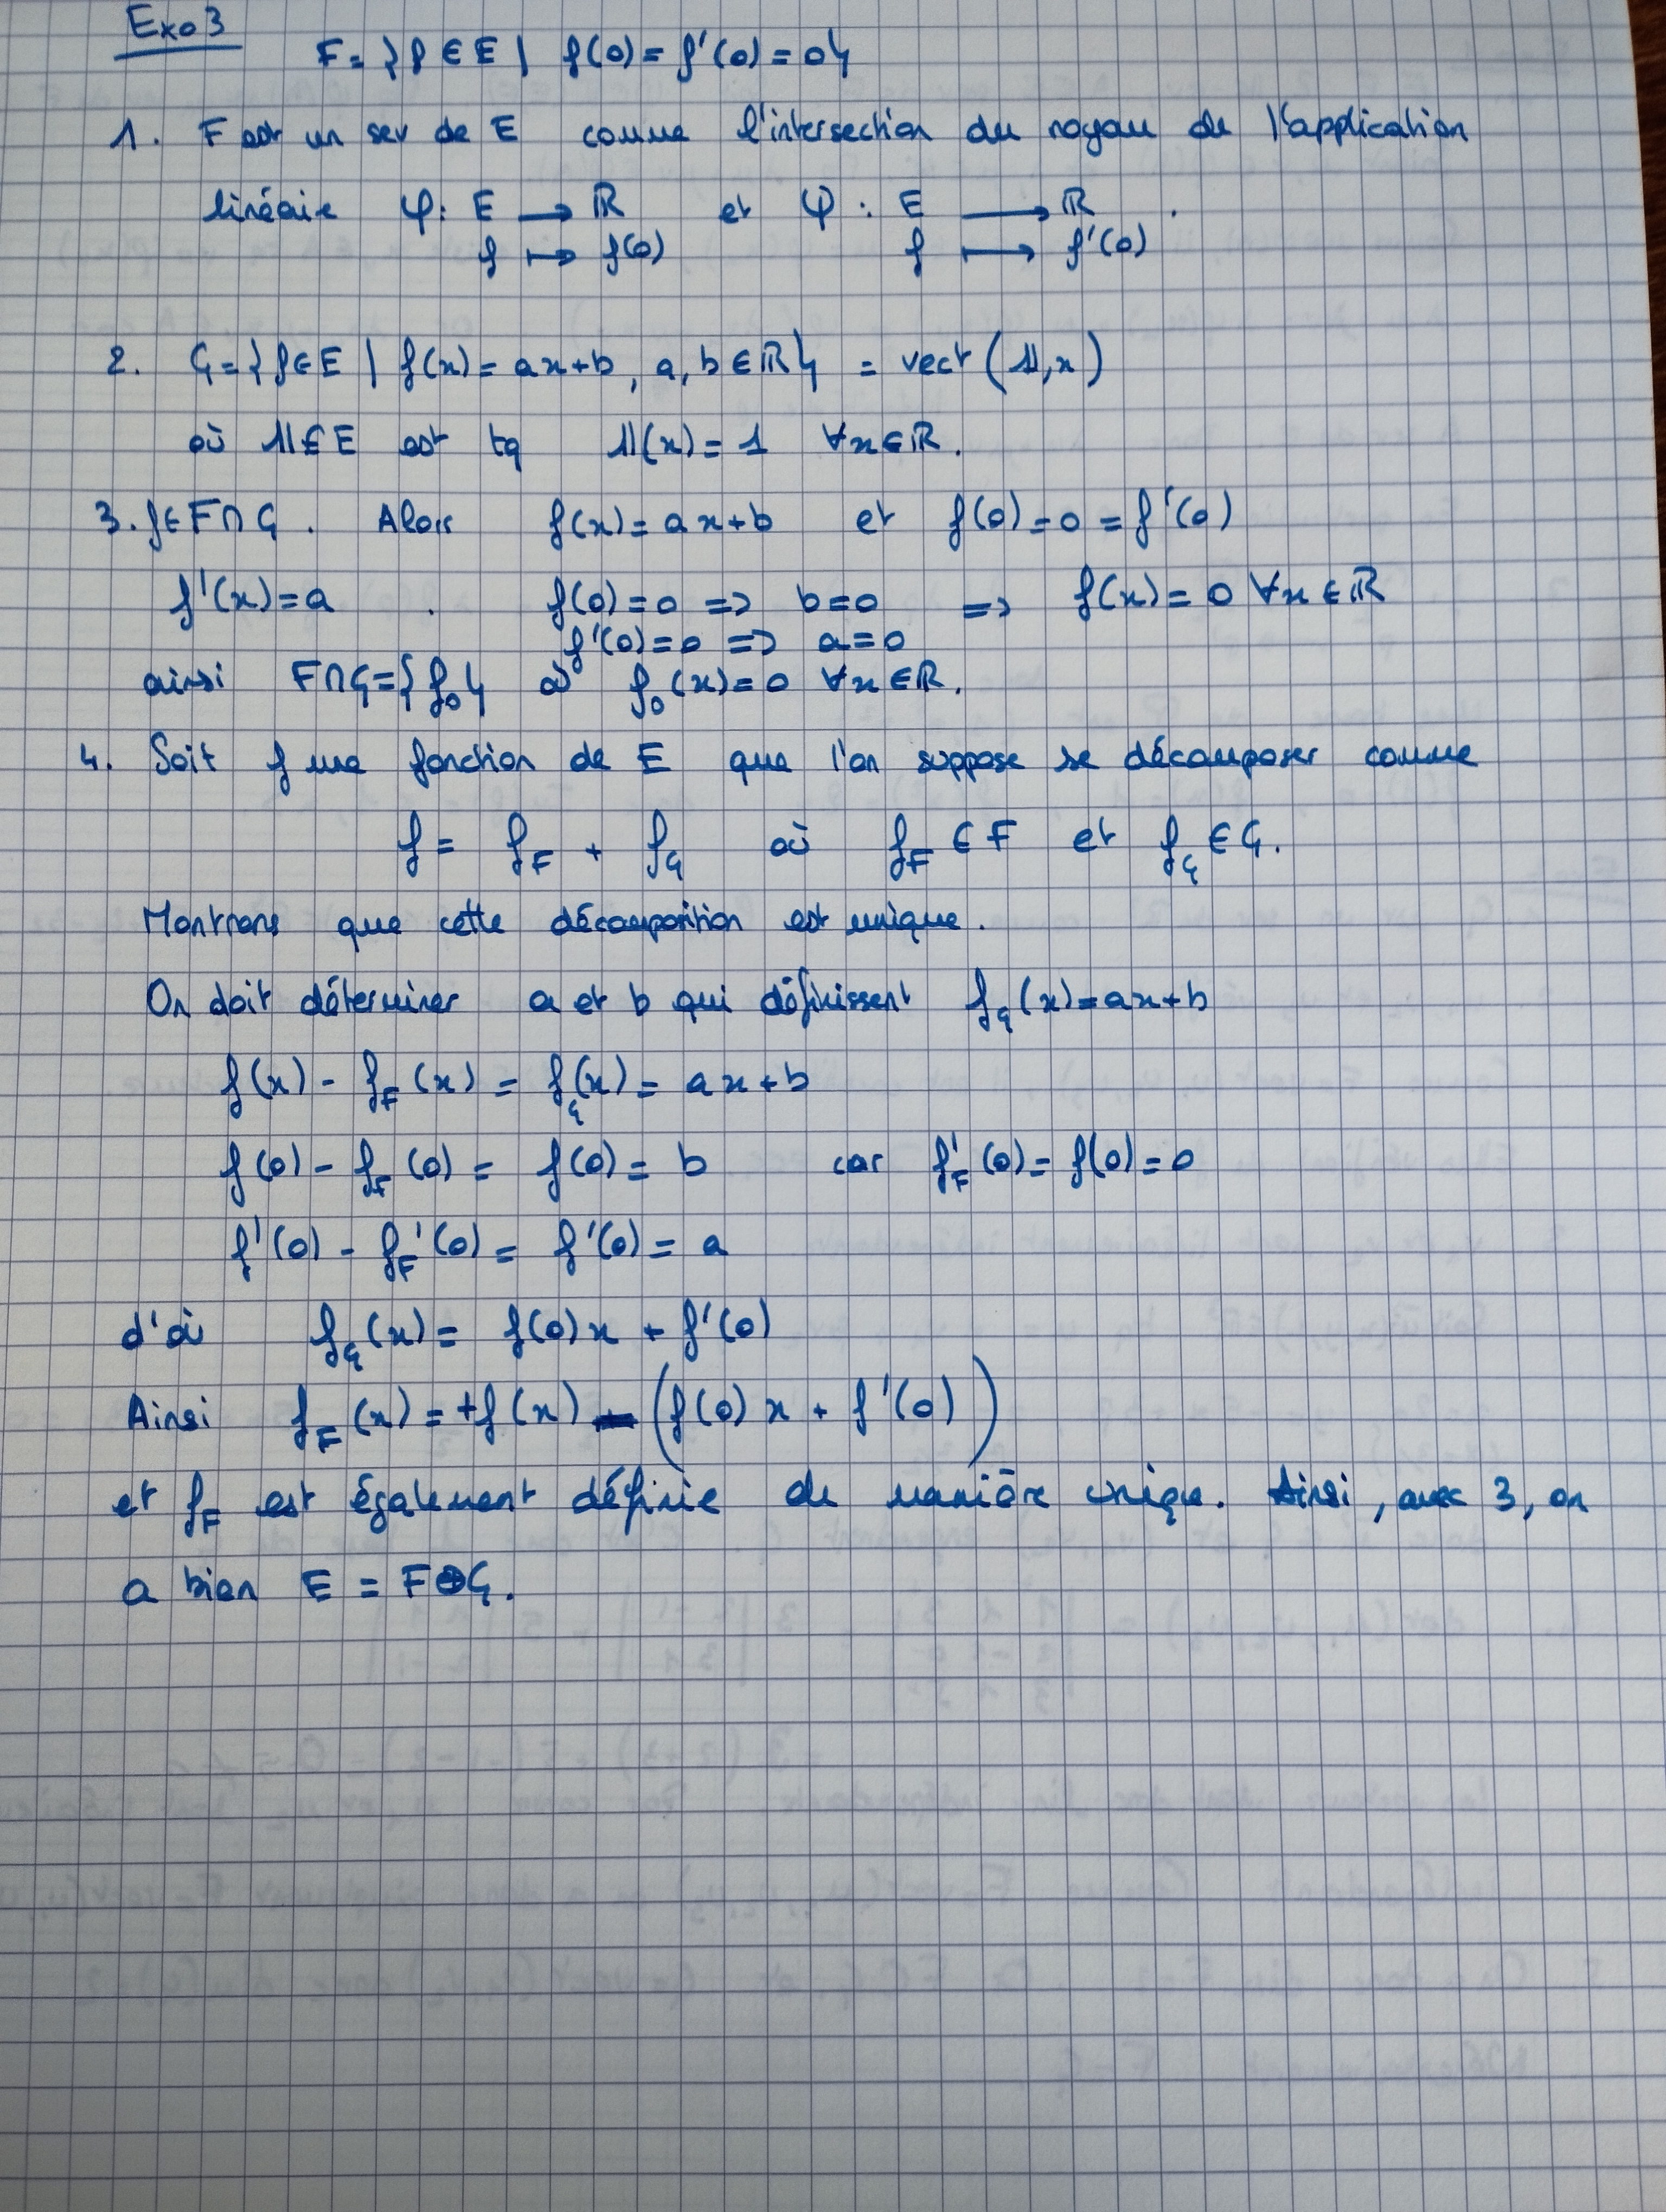 Exo 3
F = {f ∈ E | f(0) = f'(0) = 0}
1. F est un sev de E comme l'intersection du noyau de l'application
linéaire φ: E → ℝ et ψ : E → ℝ .
f ↦ f(0) f ↦ f'(0)
2. G = {f ∈ E | f(x) = ax+b, a, b ∈ ℝ} = vect(𝟙, x)
où 𝟙 ∈ E est tq 𝟙(x) = 1 ∀x ∈ ℝ.
3. f ∈ F∩G . Alors f(x) = ax+b et f(0) = 0 = f'(0)
f'(x) = a . f(0) = 0 => b = 0 => f(x) = 0 ∀x ∈ ℝ
f'(0) = 0 => a = 0
ainsi F∩G = {f₀} où f₀(x) = 0 ∀x ∈ ℝ.
4. Soit f une fonction de E que l'on suppose se décomposer comme
f = f_F + f_G où f_F ∈ F et f_G ∈ G.
Montrons que cette décomposition est unique.
On doit déterminer a et b qui définissent f_G(x) = ax+b
f(x) - f_F(x) = f_G(x) = ax+b
f(0) - f_F(0) = f(0) = b car f_F'(0) = f(0) = 0
f'(0) - f_F'(0) = f'(0) = a
d'où f_G(x) = f(0)x + f'(0)
Ainsi f_F(x) = +f(x) - (f(0)x + f'(0))
et f_F est également définie de manière unique. Ainsi, avec 3, on
a bien E = F⊕G.